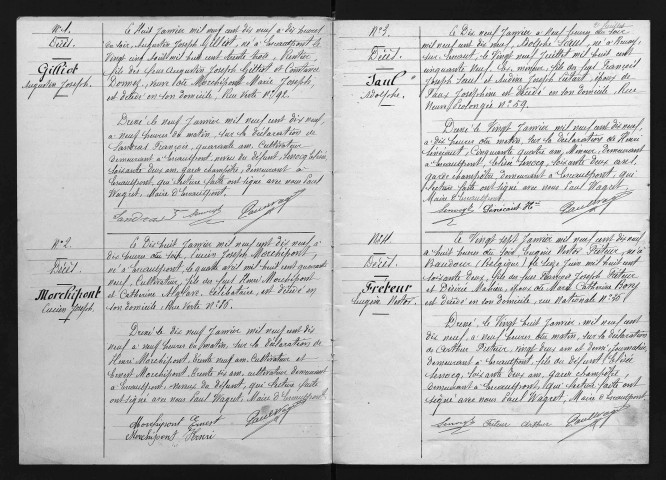 N° 1.
Décès
Gilliot
Augustin Joseph.
Le Huit Janvier mil neuf cent dix neuf à dix heures
du soir, Augustin Joseph Gilliot, né à
vingt cinq Août mil huit cent trente trois, Rentier,
fils des feus Augustin Joseph Gilliot et Constance
veuf de Morchipont Marie Joseph,
est décédé en son domicile, Rue Verte N° 92.
Dressé le neuf Janvier mil neuf cent dix neuf,
à neuf heures du matin, sur la déclaration de
François, quarante ans, Cultivateur
demeurant à neveu du défunt,
soixante deux ans, garde champêtre, demeurant à
qui lecture faite ont signé avec nous Paul
Wagret, Maire d'
N° 2.
Décès
Morchipont
Lucien Joseph.
Le Dix huit Janvier mil neuf cent dix neuf, à
dix heures du soir, Lucien Joseph Morchipont,
né à le quatre Avril mil huit cent quarante
neuf, Cultivateur, fils des feus Henri Morchipont
et Catherine célibataire, est décédé en
son domicile, Rue Verte N°
Dressé le dix neuf Janvier, mil neuf cent dix
neuf à neuf heures du matin, sur la déclaration de
Henri Morchipont, trente neuf ans, Cultivateur et
Ernest Morchipont, trente six ans, cultivateur demeurant
à neveux du défunt, qui lecture faite
ont signé avec nous Paul Wagret, Maire d'
Morchipont Ernest
Morchipont Henri
N° 3.
Décès
Saul
Adolphe.
Le Dix neuf Janvier à neuf heures du soir
mil neuf cent dix neuf, Adolphe Saul, né à
sur le vingt neuf Juillet mil huit cent
cinquante neuf, fils des feus François
Joseph Saul et Joseph époux de
Joséphine est décédé en son domicile, Rue
Neuve Prolongée N° 59.
Dressé le Vingt Janvier mil neuf cent dix neuf,
à dix heures du matin sur la déclaration de Henri
Sénécaut, Cinquante quatre ans, Mineur, demeurant
à soixante deux ans,
garde champêtre demeurant à qui
lecture faite ont signé avec nous Paul Wagret
Maire d'
Sénécaut Hri
N° 4.
Décès
Fréteur
Eugène Victor.
Le Vingt sept Janvier mil neuf cent dix neuf
à huit heures du soir Eugène Victor Fréteur, né à
Baudour (Belgique) le six Juin mil huit cent
soixante deux, fils de feu Joseph Fréteur
et Désirée Mahieu, époux de Marie Catherine Bory
est décédé en son domicile, rue Nationale N°
Dressé le Vingt huit Janvier, mil neuf cent dix
neuf, à neuf heures du matin, sur la déclaration
de Arthur Fréteur, vingt deux ans et demi, journalier,
demeurant à fils du défunt et
soixante deux ans, garde champêtre,
demeurant à qui lecture faite ont
signé avec nous Paul Wagret, Maire d'
Fréteur Arthur